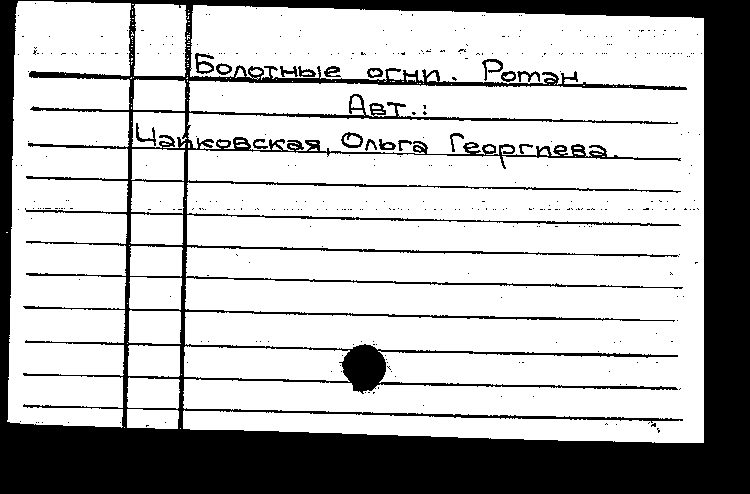 Болотные огни. Роман.
Авт.:
Чайковская, Ольга Георгиева.